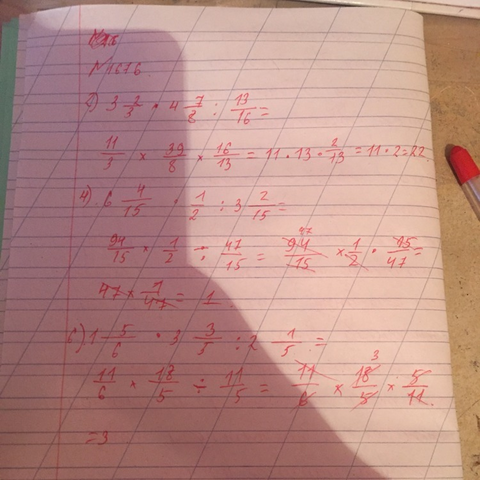 N 1616.
2) 3 2/3 · 4 7/8 : 13/16 =
11/3 × 39/8 × 16/13 = 11 · 13 · 2/13 = 11 · 2 = 22
4) 6 4/15 · 1/2 : 3 2/15 =
94/15 × 1/2 ÷ 47/15 = 94/15 47 × 1/2 · 15/47 =
47 × 1/47 = 1
6) 1 5/6 · 3 3/5 : 2 1/5 =
11/6 × 18/5 ÷ 11/5 = 11/6 × 18/5 3 × 5/11
= 3